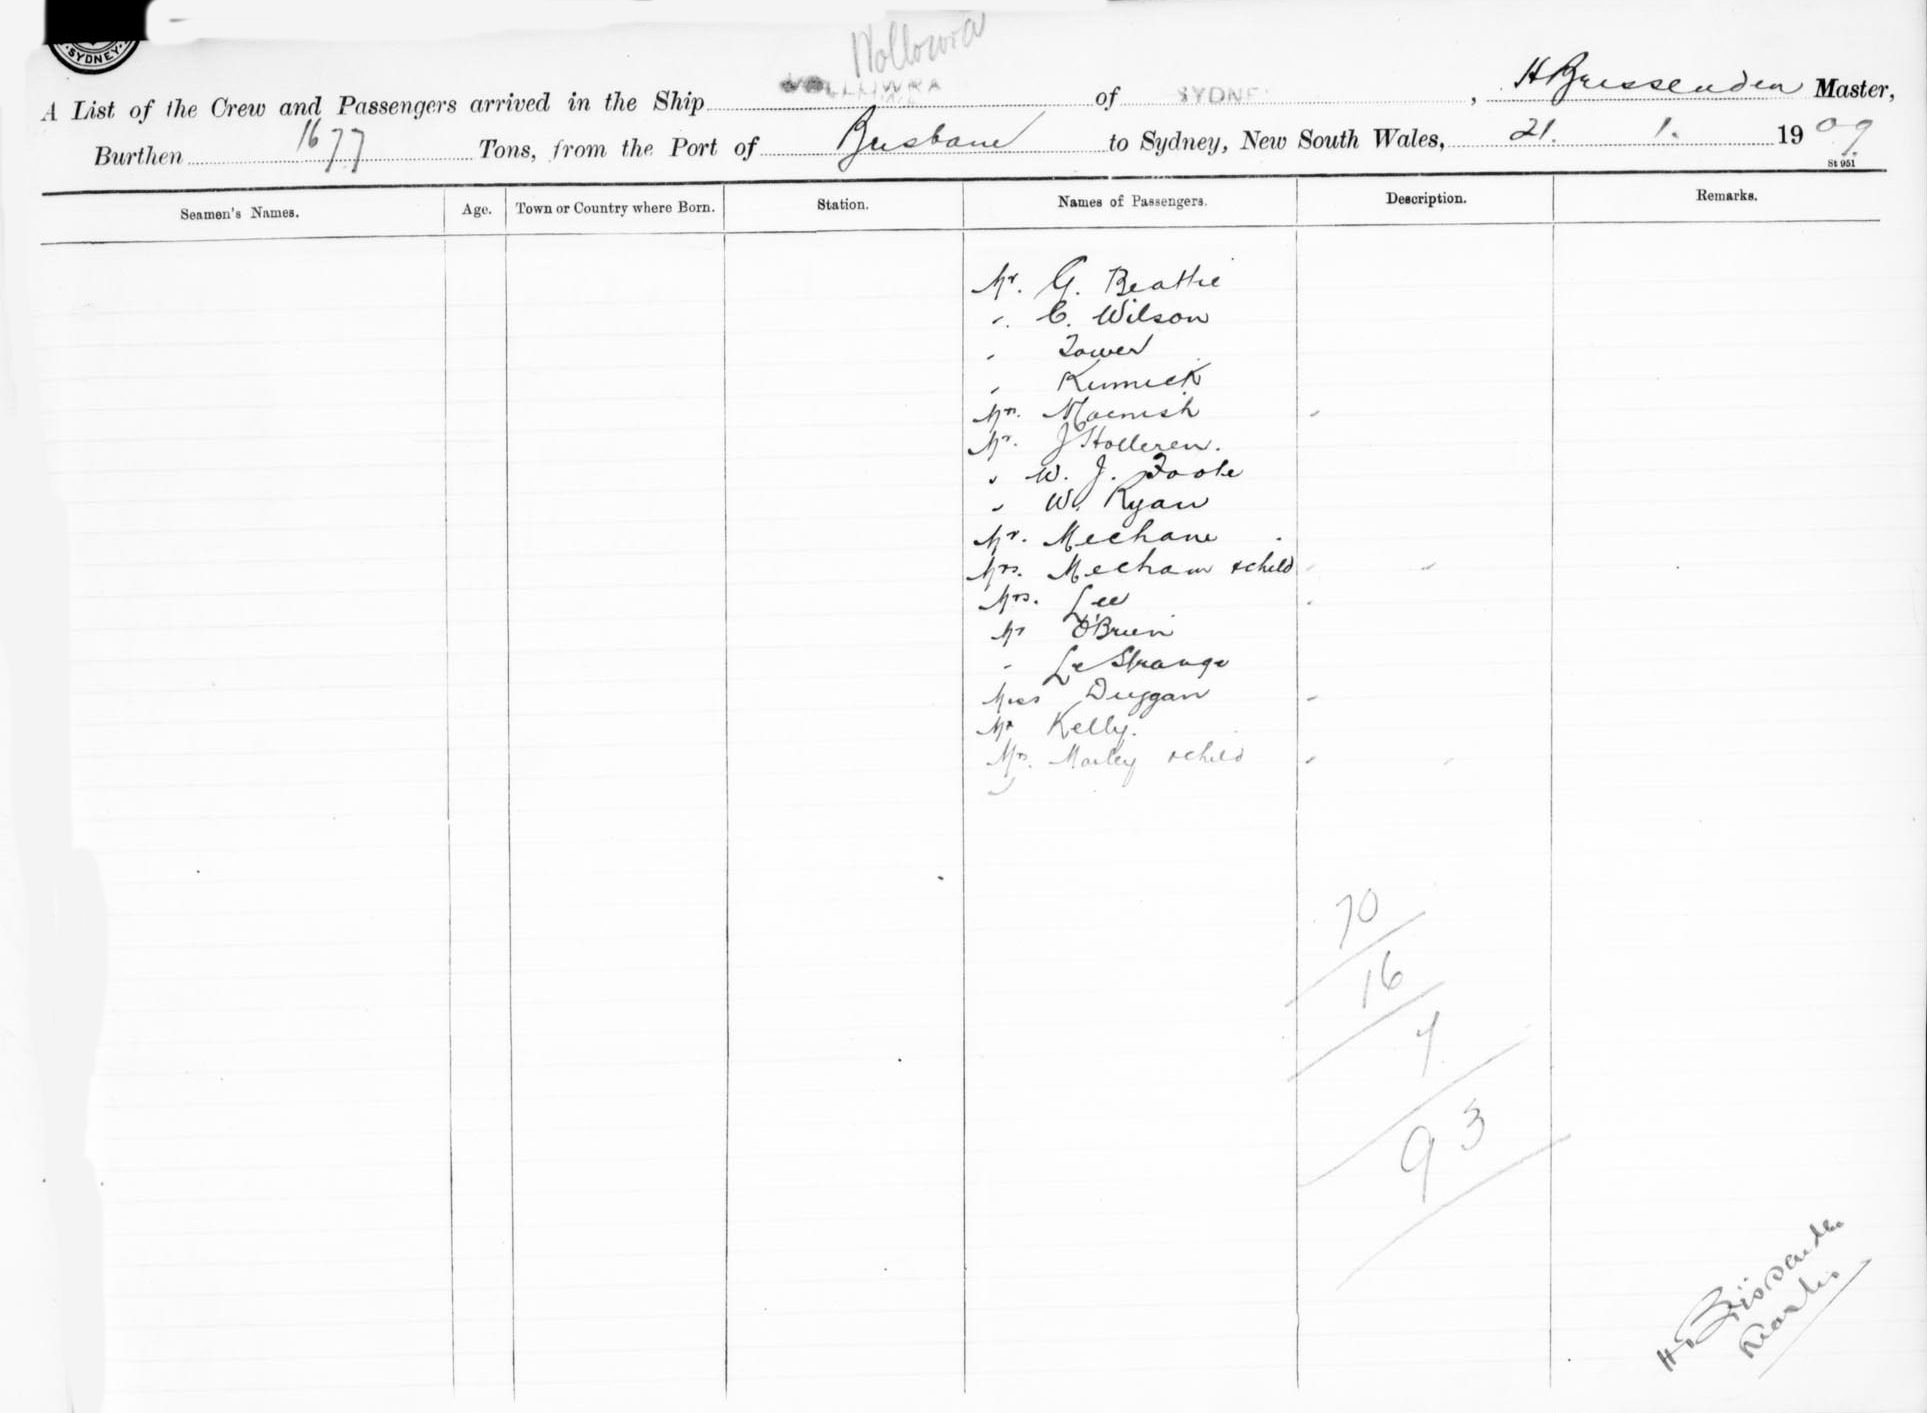 SYDNEY
Wollowra
A List of the Crew and Passengers arrived in the Ship WOLLOWRA of SYDNEY, H Brissenden Master,
Burthen 1677 Tons, from the Port of Brisbane to Sydney, New South Wales, 21. 1. 1909
St 951
Seamen's Names. Age. Town or Country where Born. Station. Names of Passengers. Description. Remarks.
Mr. G. Beattie
". C. Wilson
" Tower
" Kinnick
Mrs. Macnish
Mr. J Holleren.
" W. J. Foote
" W. Ryan
Mr. Mechane
Mrs. Mecham & child
Mrs. Lee
Mr O'Brien
" Le Strange
Miss Duggan
Mr Kelly.
Mrs. Marley & child
70
16
7
93
H Brissenden
Master